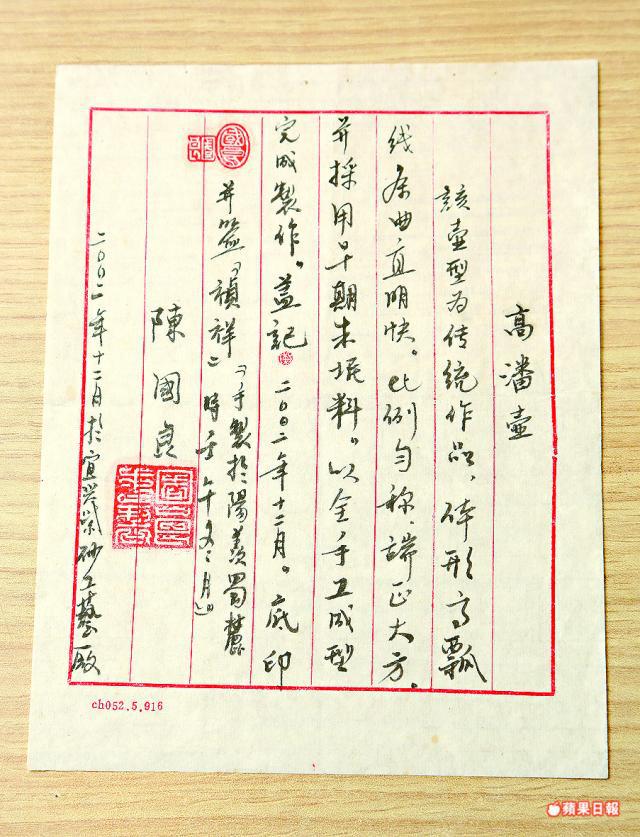 高潘壺
該壺型为传统作品，体形高瓢
线条曲直明快。比例匀称，端正大方。
并採用早期朱坭料。以全手工成型
完成製作。盖記 二〇〇二年十二月。底印
并簽「禎祥」「手製於陽羡蜀麓
時壬午冬月」
陳國良
二〇〇二年十二月於宜兴紫砂工藝厰
國良
ch052.5.916
蘋果日報